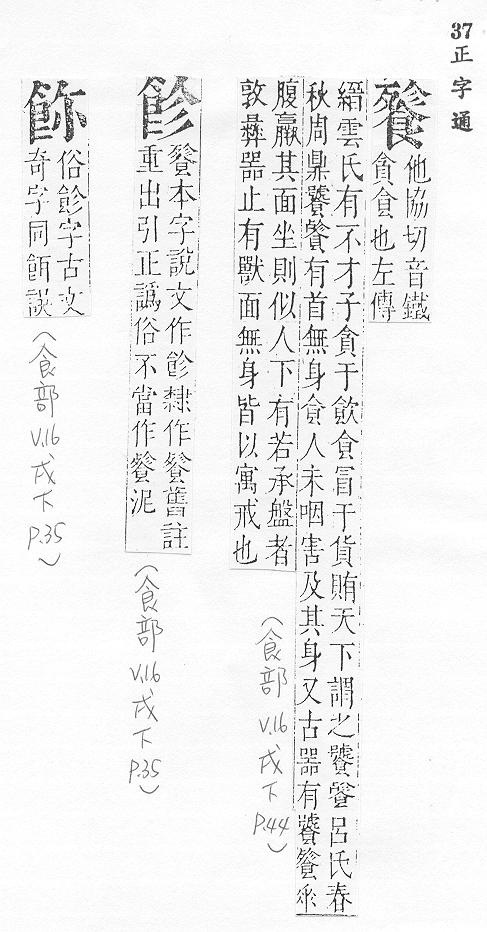 37正字通
餮
他協切音鐵
貪食也左傳
縉雲氏有不才子貪于飲食冒于貨賄天下謂之饕餮呂氏春
秋周鼎饕餮有首無身食人未咽害及其身又古器有饕餮
腹羸其面坐則似人下有若承盤者
敦彝器止有獸面無身皆以寓戒也
(食部 V.16 戌下 P.44)
飻
餮本字說文作飻隸作餮舊註
重出引正譌俗不當作餮泥
(食部 V.16 戌下 P.35)
俗飻字古文
奇字同誤
(食部 V.16 戌下 P.35)